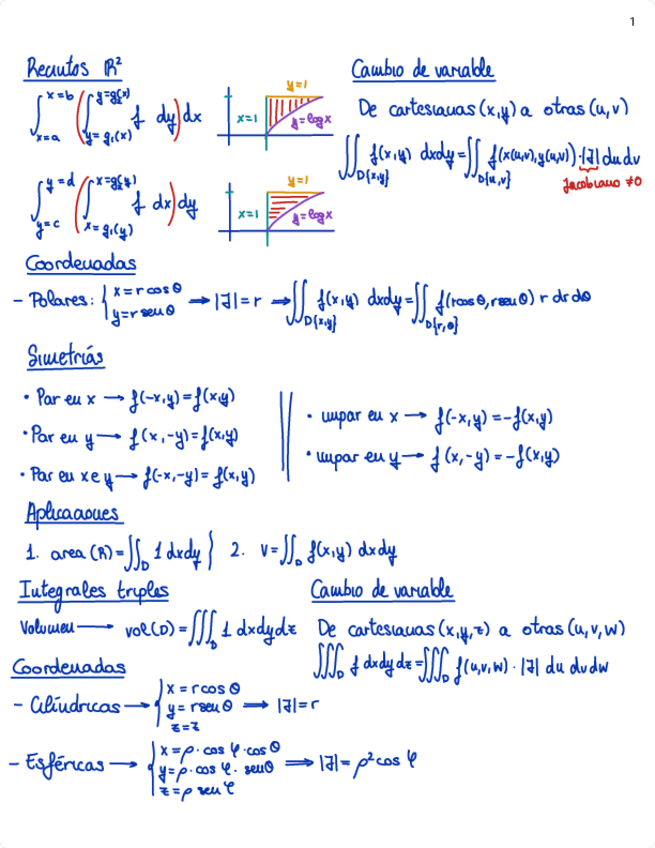 1
Recintos ℝ²
∫_{x=a}^{x=b} (∫_{y=g₁(x)}^{y=g₂(x)} f dy) dx
y=1
x=1
y=logx
∫_{y=c}^{y=d} (∫_{x=g₁(y)}^{x=g₂(y)} f dx) dy
y=1
x=1
y=logx
Cambio de variable
De cartesianas (x,y) a otras (u,v)
∬_{D{x,y}} f(x,y) dxdy = ∬_{D{u,v}} f(x(u,v),y(u,v))·|J| du dv
Jacobiano ≠0
Coordenadas
- Polares: { x=r cosθ y=r senθ → |J|=r → ∬_{D{x,y}} f(x,y) dxdy = ∬_{D{r,θ}} f(rcosθ, rsenθ) r dr dθ
Simetrías
• Par en x → f(-x,y)=f(x,y)
• Par en y → f(x,-y)=f(x,y)
• Par en x e y → f(-x,-y)= f(x,y)
• impar en x → f(-x,y)=-f(x,y)
• impar en y → f(x,-y)=-f(x,y)
Aplicaciones
1. area (R)=∬_D 1 dxdy } 2. V=∬_D f(x,y) dxdy
Integrales triples
Volumen → vol(D)=∭_D 1 dxdydz
Cambio de variable
De cartesianas (x,y,z) a otras (u,v,w)
∭_D f dxdydz = ∭_D f(u,v,w)·|J| du dv dw
Coordenadas
- Cilíndricas → { x=rcosθ y=rsenθ z=z → |J|=r
- Esféricas → { x=ρ·cosφ·cosθ y=ρ·cosφ·senθ z=ρ senφ ⇒ |J|=ρ²cosφ